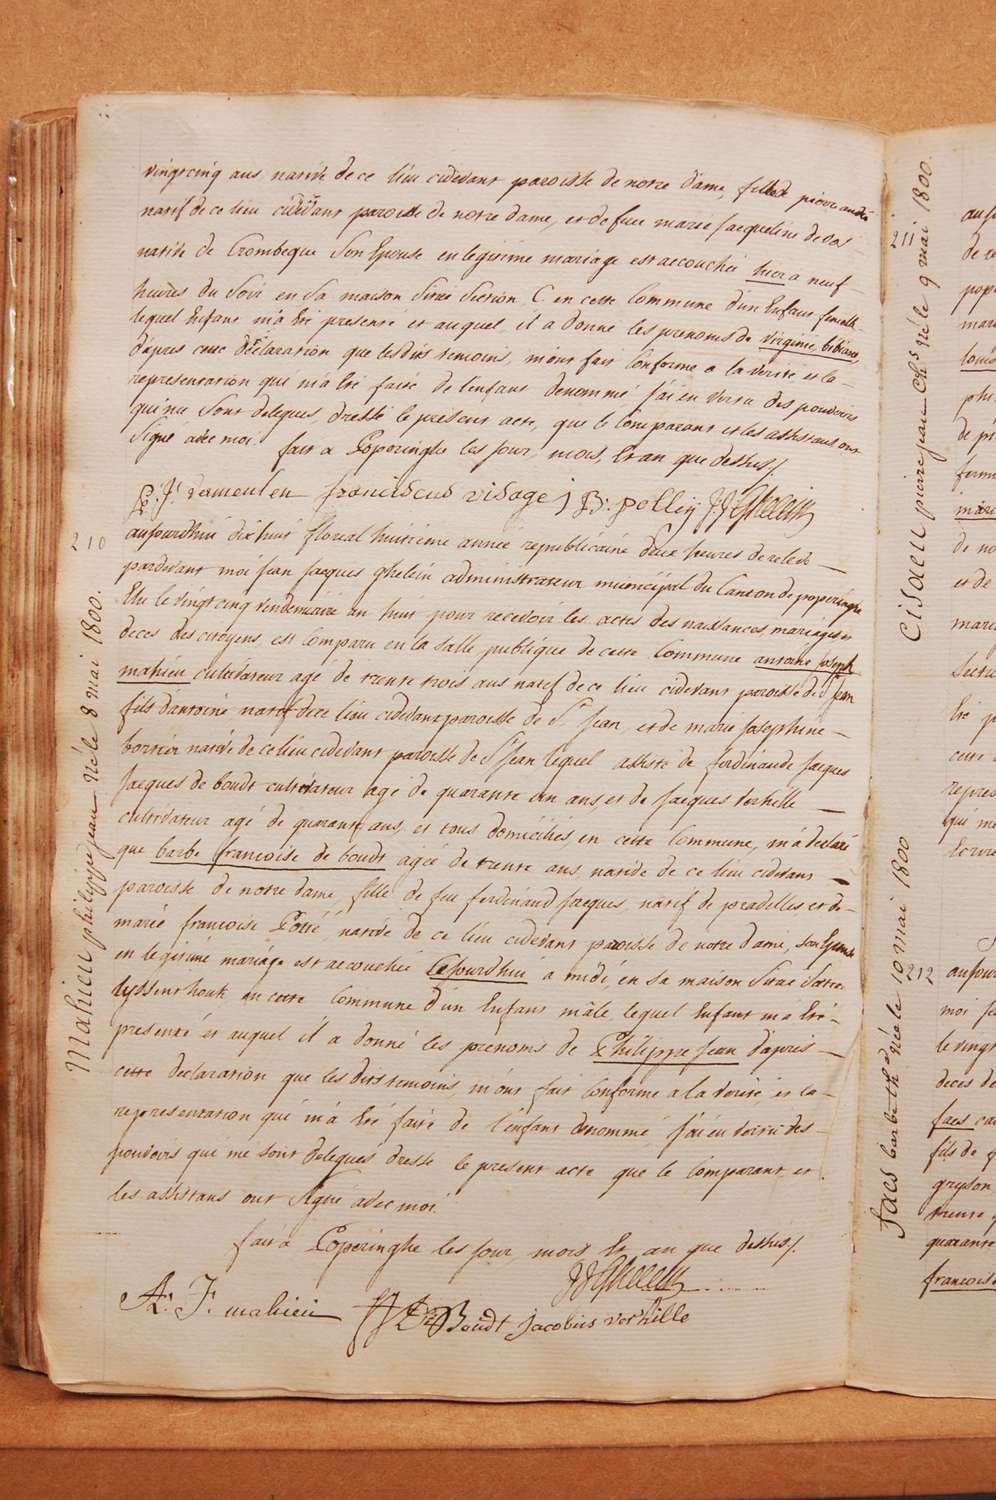 vingt cinq ans native de ce lieu cidevant paroisse de notre dame, fille de pierre andré
natif de ce lieu cidevant paroisse de notre dame, et de feue marie jacqueline de vos
native de Crombeque son Epouse en legitime mariage est accouchée hier a neuf
heures du soir en sa maison sitüé Section C en cette Commune d'un Enfant femelle
lequel Enfant m'a été presenté et auquel il a donné les prenoms de virginie, bibiane,
d'apres cette déclaration que lesdits temoins, m'ont fait Conforme a la verité et la
representation qui m'a été faite de l'enfant denommé j'ai en vertu des pouvoirs
qui me sont delegues, dressé le present acte, que le Comparant et les assistans ont
Signé avec moi.
fait a Poperinghe les jour, mois, et an que dessus.
franciscus visage j B: polley
210
aujourdhui dix huit floreal huitieme année républicaine deux heures de relevé
pardevant moi jean jacques ghelein administrateur municipal du Canton de poperinghe
Elu le vingt cinq vendemiaire an huit pour recevoir les actes des naissances, mariages et
deces des citoyens, est comparu en la salle publique de cette Commune antoine joseph
mahieu cultivateur agé de trente trois ans natif de ce lieu cidevant paroisse de St jean
fils d'antoine natif de ce lieu cidevant paroisse de St jean, et de marie josephine
native de ce lieu cidevant paroisse de St jean lequel assisté de ferdinande jacques
jacques de boudt cultivateur agé de quarante un ans et de jacques verhille
cultivateur agé de quarante ans, et tous domiciliés, en cette Commune, m'a déclaré
que barbe françoise de boudt agée de trente ans, native de ce lieu cidevant
paroisse de notre dame, fille de feu ferdinand jacques, natif de pradelles et de
marie françoise Potté, native de ce lieu cidevant paroisse de notre dame, son Epouse
en legitime mariage est accouchée Cejourdhui a midi, en sa maison sitüé Section
lyssenthouk en cette Commune d'un Enfant mâle, lequel Enfant m'a été
presenté et auquel il a donné les prenoms de Philippe jean d'après
cette declaration que lesdits temoins, m'ont fait Conforme a la verité, et la
representation qui m'a été faite de l'enfant denommé j'ai en vertu des
pouvoirs qui me sont delegues dressé le present acte que le Comparant et
les assistans ont Signé avec moi
fait a Poperinghe les jour mois Et an que dessus.
A: J: mahieu Boudt jacobus verhille
Mahieu philippe jean né le 8 mai 1800.
211
Cisaeu pierre jean Chs né le 9 mai 1800.
212
faes barbe thd née le 10 mai 1800
aujour
moi je
le vingt
deces de
faes cu
fils de
gryson
trente
quarante
francoise